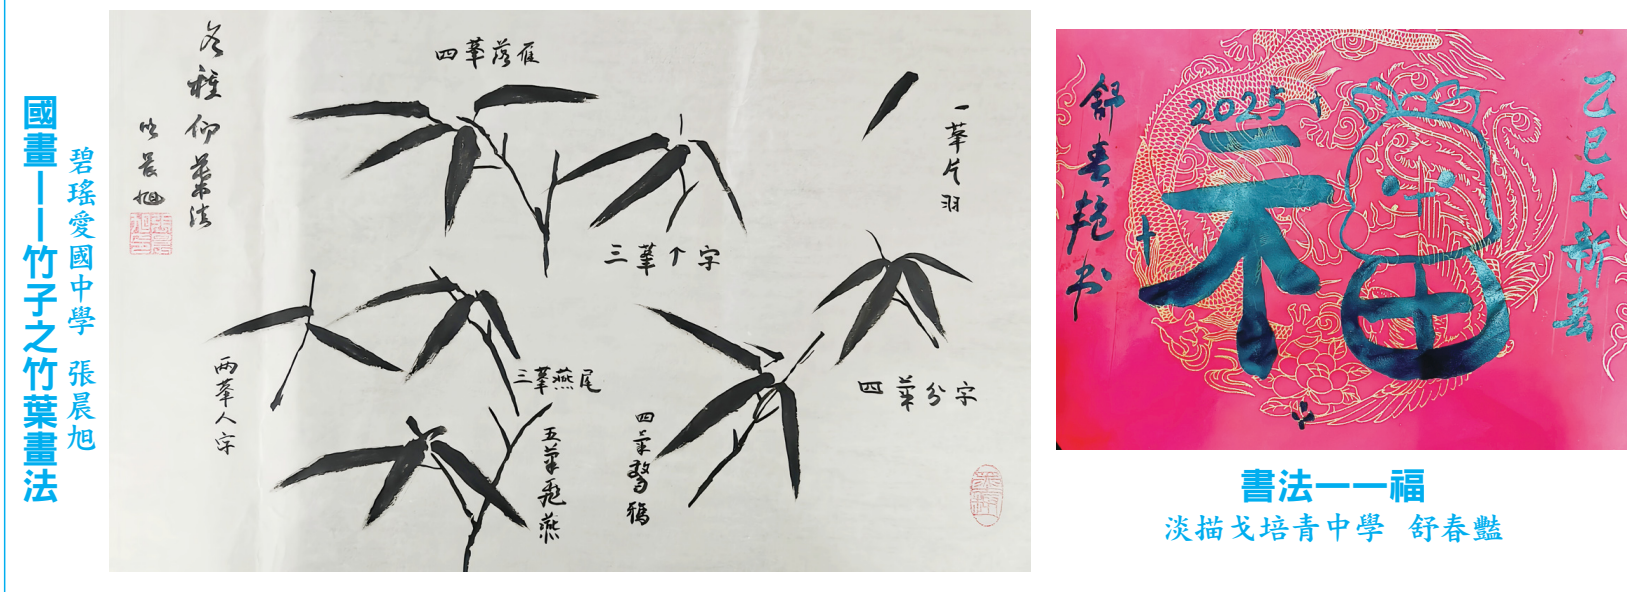 國畫——竹子之竹葉畫法
碧瑤愛國中學 張晨旭
各種仰葉法
晨旭
四葉落雁
一葉片羽
三葉个字
兩葉人字
三葉燕尾
四葉分字
五葉飛燕
四葉驚鴉
舒春艳书
2025
福
乙巳年新喜
書法——福
淡描戈培青中學 舒春豔